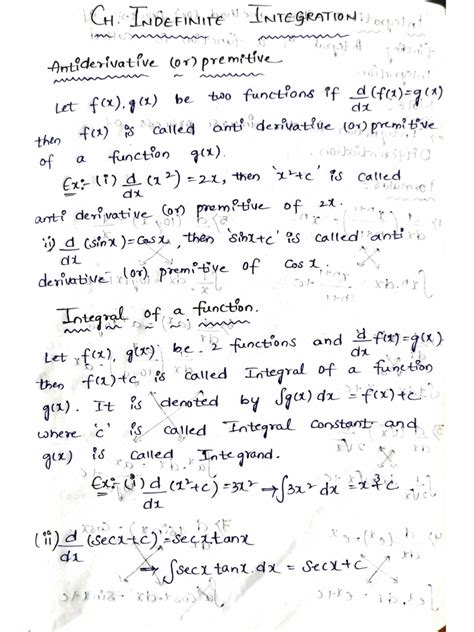 CH INDEFINITE INTEGRATION
Antiderivative (or) premitive
Let f(x), g(x) be two functions if d/dx (f(x)=g(x)
then f(x) is called anti derivative (or) premitive
of a function g(x).
Ex:- (i) d/dx (x²) = 2x, then 'x²+c' is called
anti derivative (or) premitive of 2x.
ii) d/dx (sinx) = cosx, then 'sinx+c' is called anti
derivative (or) premitive of cosx.
Integral of a function.
Let f(x), g(x) be 2 functions and d/dx f(x)=g(x)
then f(x)+c is called Integral of a function
g(x). It is denoted by ∫g(x) dx = f(x)+c
where 'c' is called Integral Constant and
g(x) is called Integrand.
Ex:- (i) d/dx (x²+c) = 3x² → ∫3x² dx = x³+c
(ii) d/dx (secx+c) = secxtanx
→ ∫secxtanx.dx = secx+c